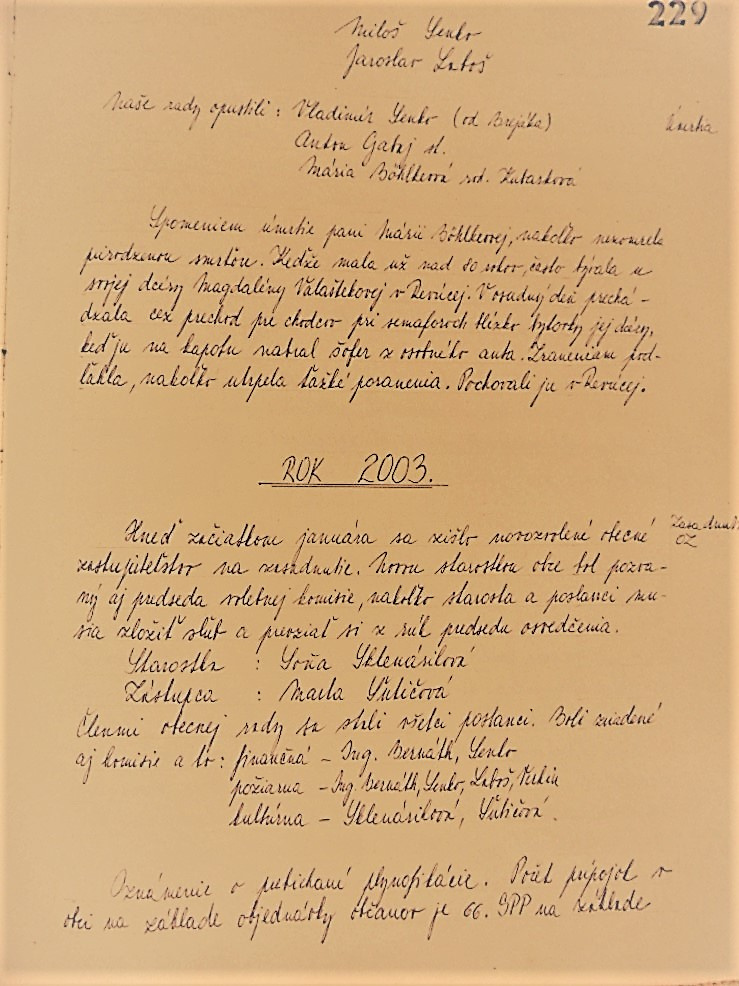 229
Miloš Senko
Jaroslav Luboš
Naše rady opustili : Vladimír Senko (od Brejáka)
úmrtia
Anton Gabaj st.
Mária Böhlkeová rod.
Spomeniem úmrtie pani Márii Böhlkeovej, nakoľko nezomrela
prirodzenou smrťou. Keďže mala už nad 80 rokov, často bývala u
svojej dcéry Magdalény Valaštekovej v Revúcej. V osudný deň prechá-
dzala cez prechod pre chodcov pri semaforoch blízko bytovky jej dcéry,
keď ju na kapotu nabral šofér z osobného auta. Zraneniam pod-
ľahla, nakoľko utrpela ťažké poranenia. Pochovali ju v Revúcej.
ROK 2003.
Hneď začiatkom januára sa zišlo novozvolené obecné
Zasadnutie
OZ
zastupiteľstvo na zasadnutie. Novou starostkou obce bol pozva-
ný aj predseda volebnej komisie, nakoľko starosta a poslanci mu-
sia zložiť sľub a prevziať si z rúk predsedu osvedčenia.
Starostka : Soňa Sklenásilová
Zástupca : Marta Šutičová
Členmi obecnej rady sa stali všetci poslanci. Boli zriadené
aj komisie a to : finančná – Ing. Bernáth, Senko
požiarna – Ing. Bernáth, Senko, Luboš,
kultúrna – Sklenásilová, Šutičová.
Oznámenie o prebiehané plynofikácie. Počet prípojok v
obci na základe objednávky občanov je 66. SPP na základe